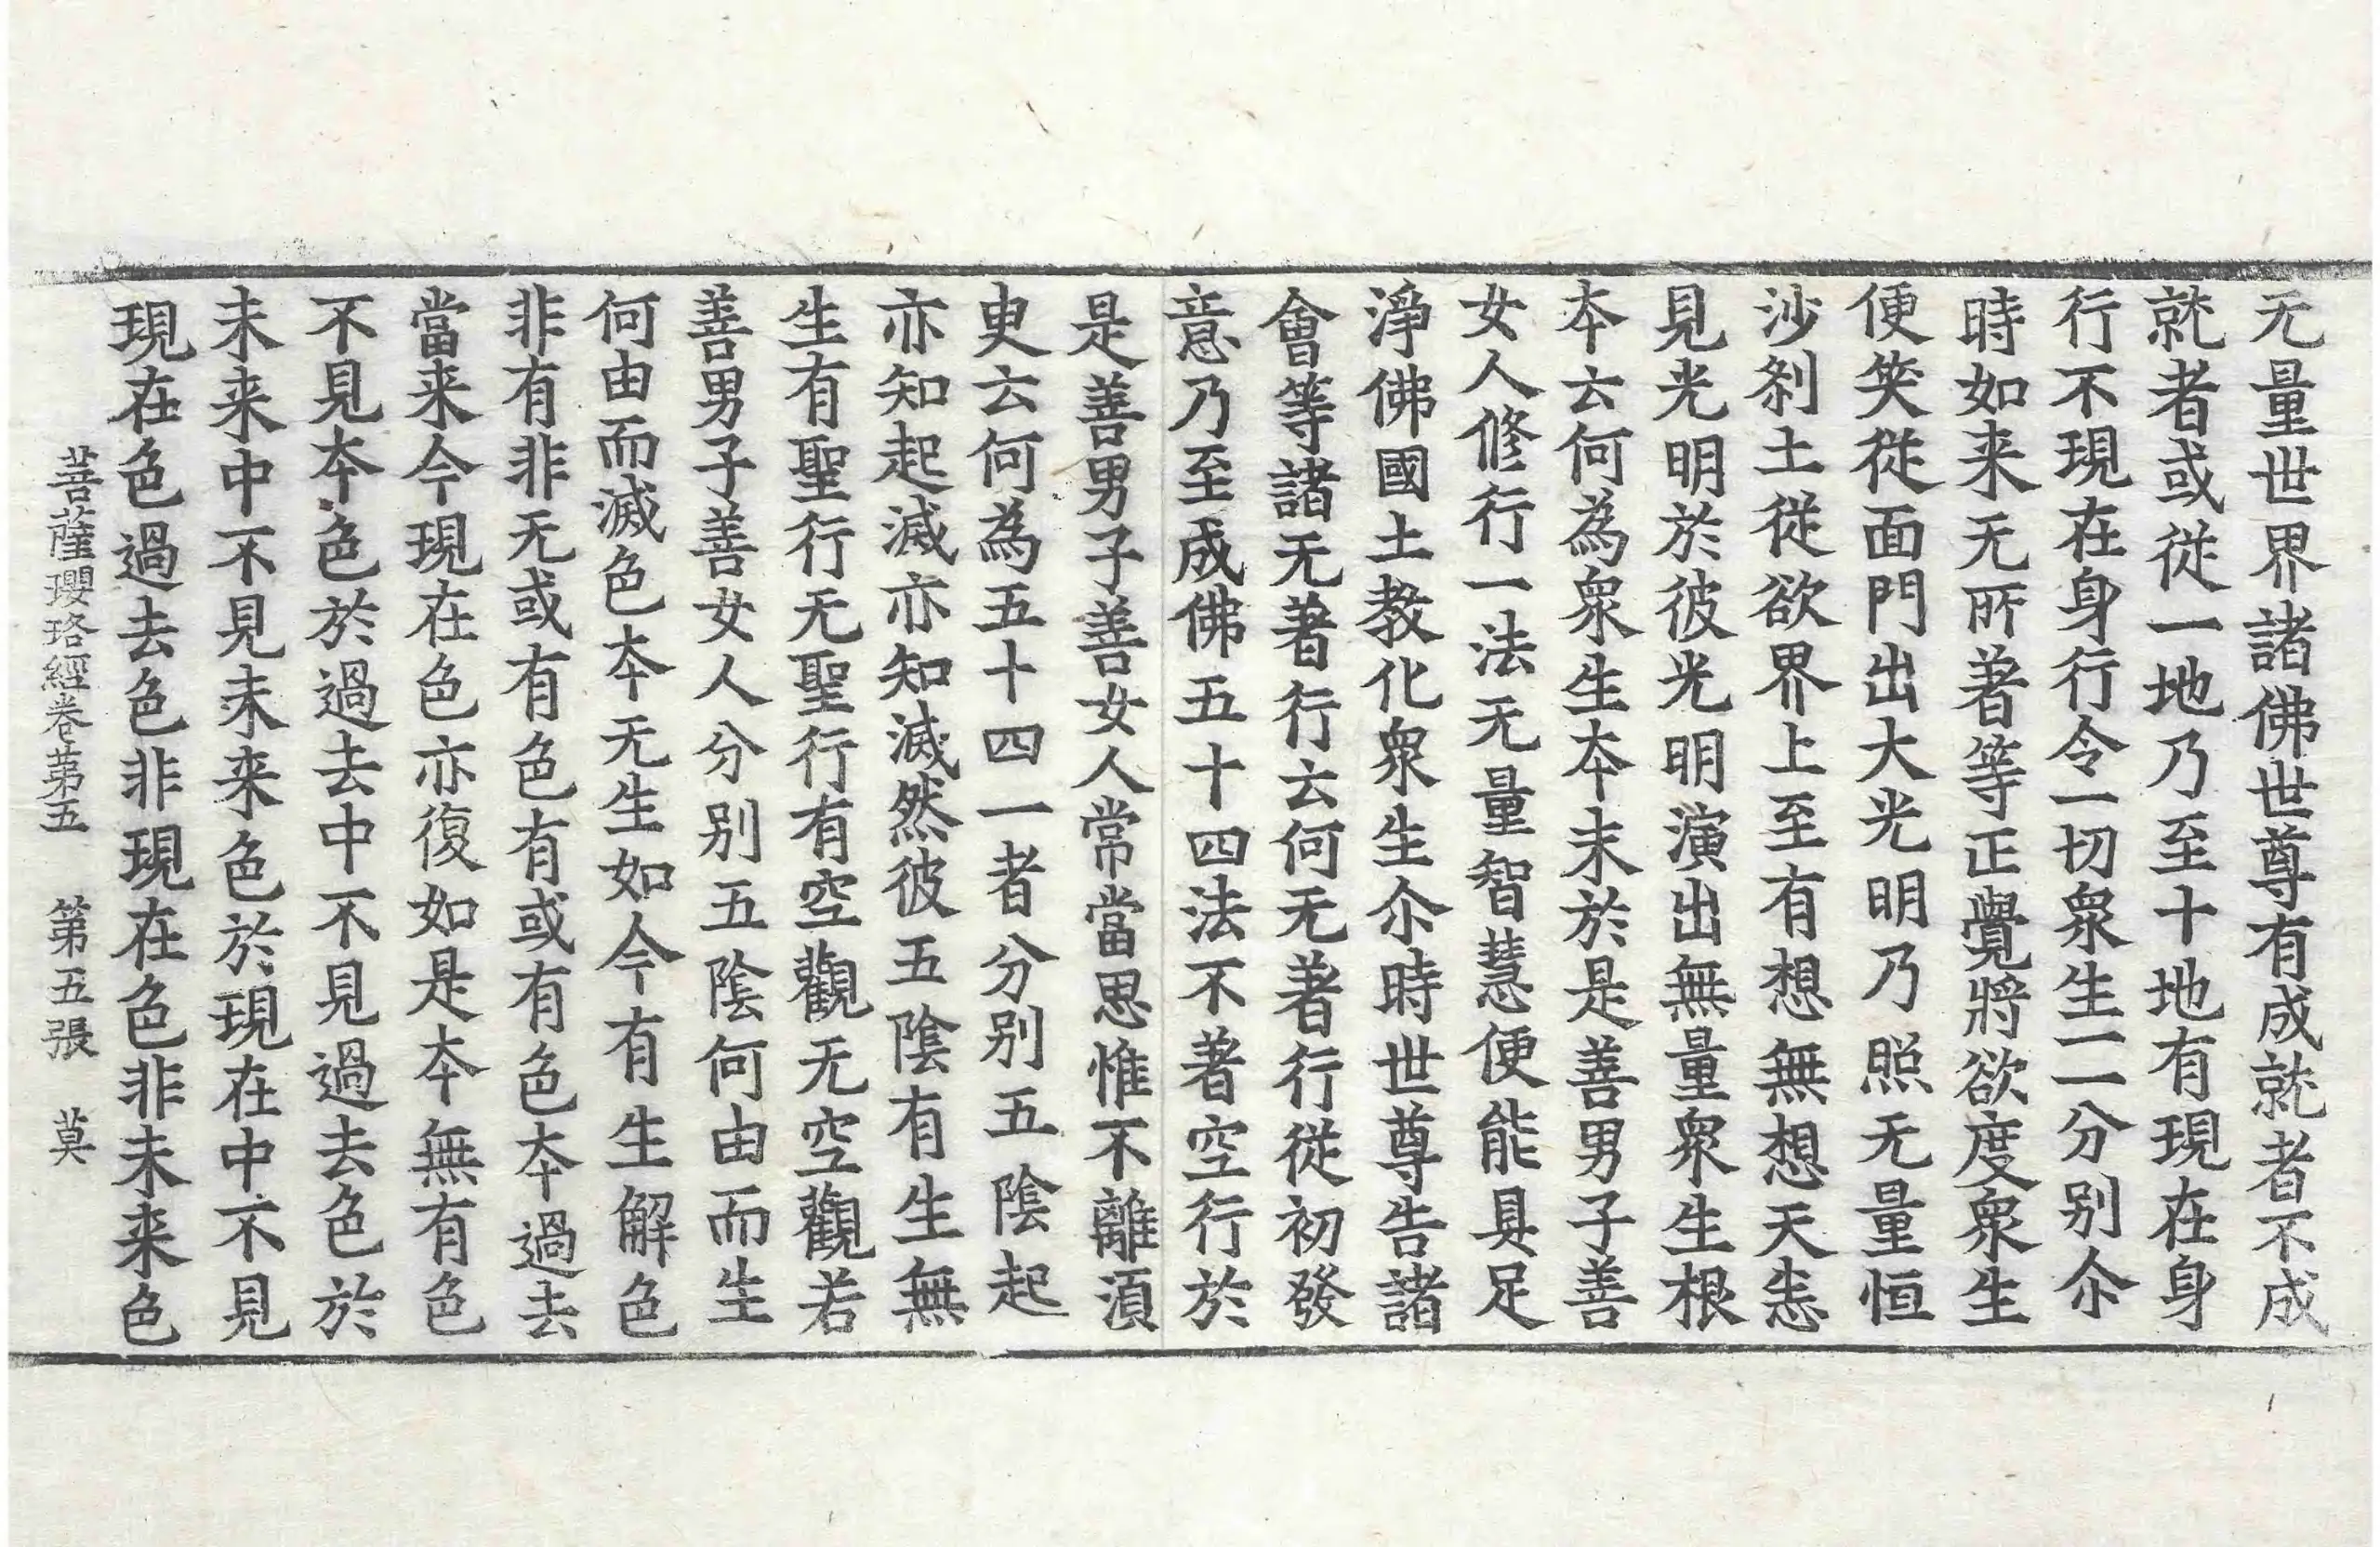 无量世界諸佛世尊有成就者不成
就者或従一地乃至十地有現在身
行不現在身行令一切衆生一一分别尒
時如来无所著等正覺將欲度衆生
便笑従面門出大光明乃照无量恒
沙刹土従欲界上至有想無想天恚
見光明於彼光明演出無量衆生根
夲云何為衆生夲末於是善男子善
女人修行一法无量智慧便能具足
淨佛國土教化衆生尒時世尊告諸
會等諸无著行云何无著行従初發
意乃至成佛五十四法不著空行於
是善男子善女人常當思惟不離湏
㬰云何為五十四一者分别五陰起
亦知起滅亦知滅然彼五陰有生無
生有聖行无聖行有空觀无空觀若
善男子善女人分别五陰何由而生
何由而滅色夲无生如今有生解色
非有非无或有色有或有色夲過去
當来今現在色亦復如是夲無有色
不見夲色於過去中不見過去色於
未来中不見未来色於現在中不見
現在色過去色非現在色非未来色
菩薩瓔珞經卷苐五　第五張　莫